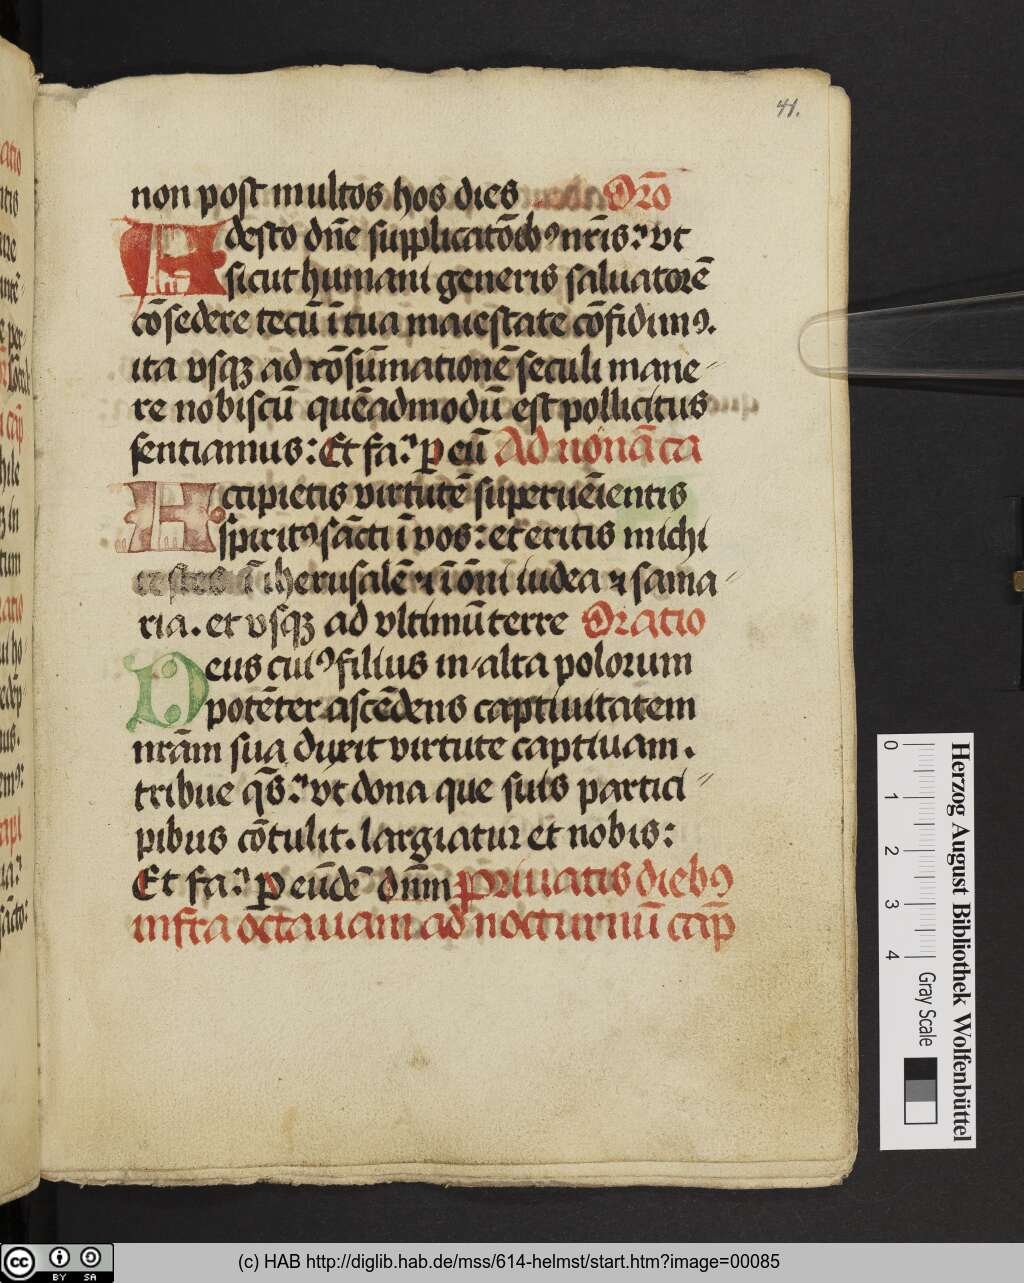 41.
non post multos hos dies Orō
Adesto dn̄e supplicatōibꝰ nr̄is: vt
sicut humani generis saluatorē
cōsedere tecū ī tua maiestate cōfidimꝰ.
ita vsqꝫ ad cōsūmationē seculi mane⸗
re nobiscū quēadmodū est pollicitus
sentiamus: Et fa: ꝑ eū Ad nonā ca
Accipietis virtutē superuēientis
spiritꝰ sācti ī vos: et eritis michi
testes ī iherusalē ⁊ ī ōni iudea ⁊ sama⸗
ria. et vsqꝫ ad vltimū terre Oratio
Deus cuiꝰ filius in alta polorum
potēter ascēdens captiuitatem
nrām sua duxit virtute captiuam.
tribue qs̄: vt dona que suis partici⸗
pibus cōtulit. largiatur et nobis:
Et fa: ꝑ eūdē dn̄m Priuatis diebꝰ
infra octauam ad nocturnū cap̄
Herzog August Bibliothek Wolfenbüttel
0 1 2 3 4 Gray Scale
cc BY SA
(c) HAB http://diglib.hab.de/mss/614-helmst/start.htm?image=00085